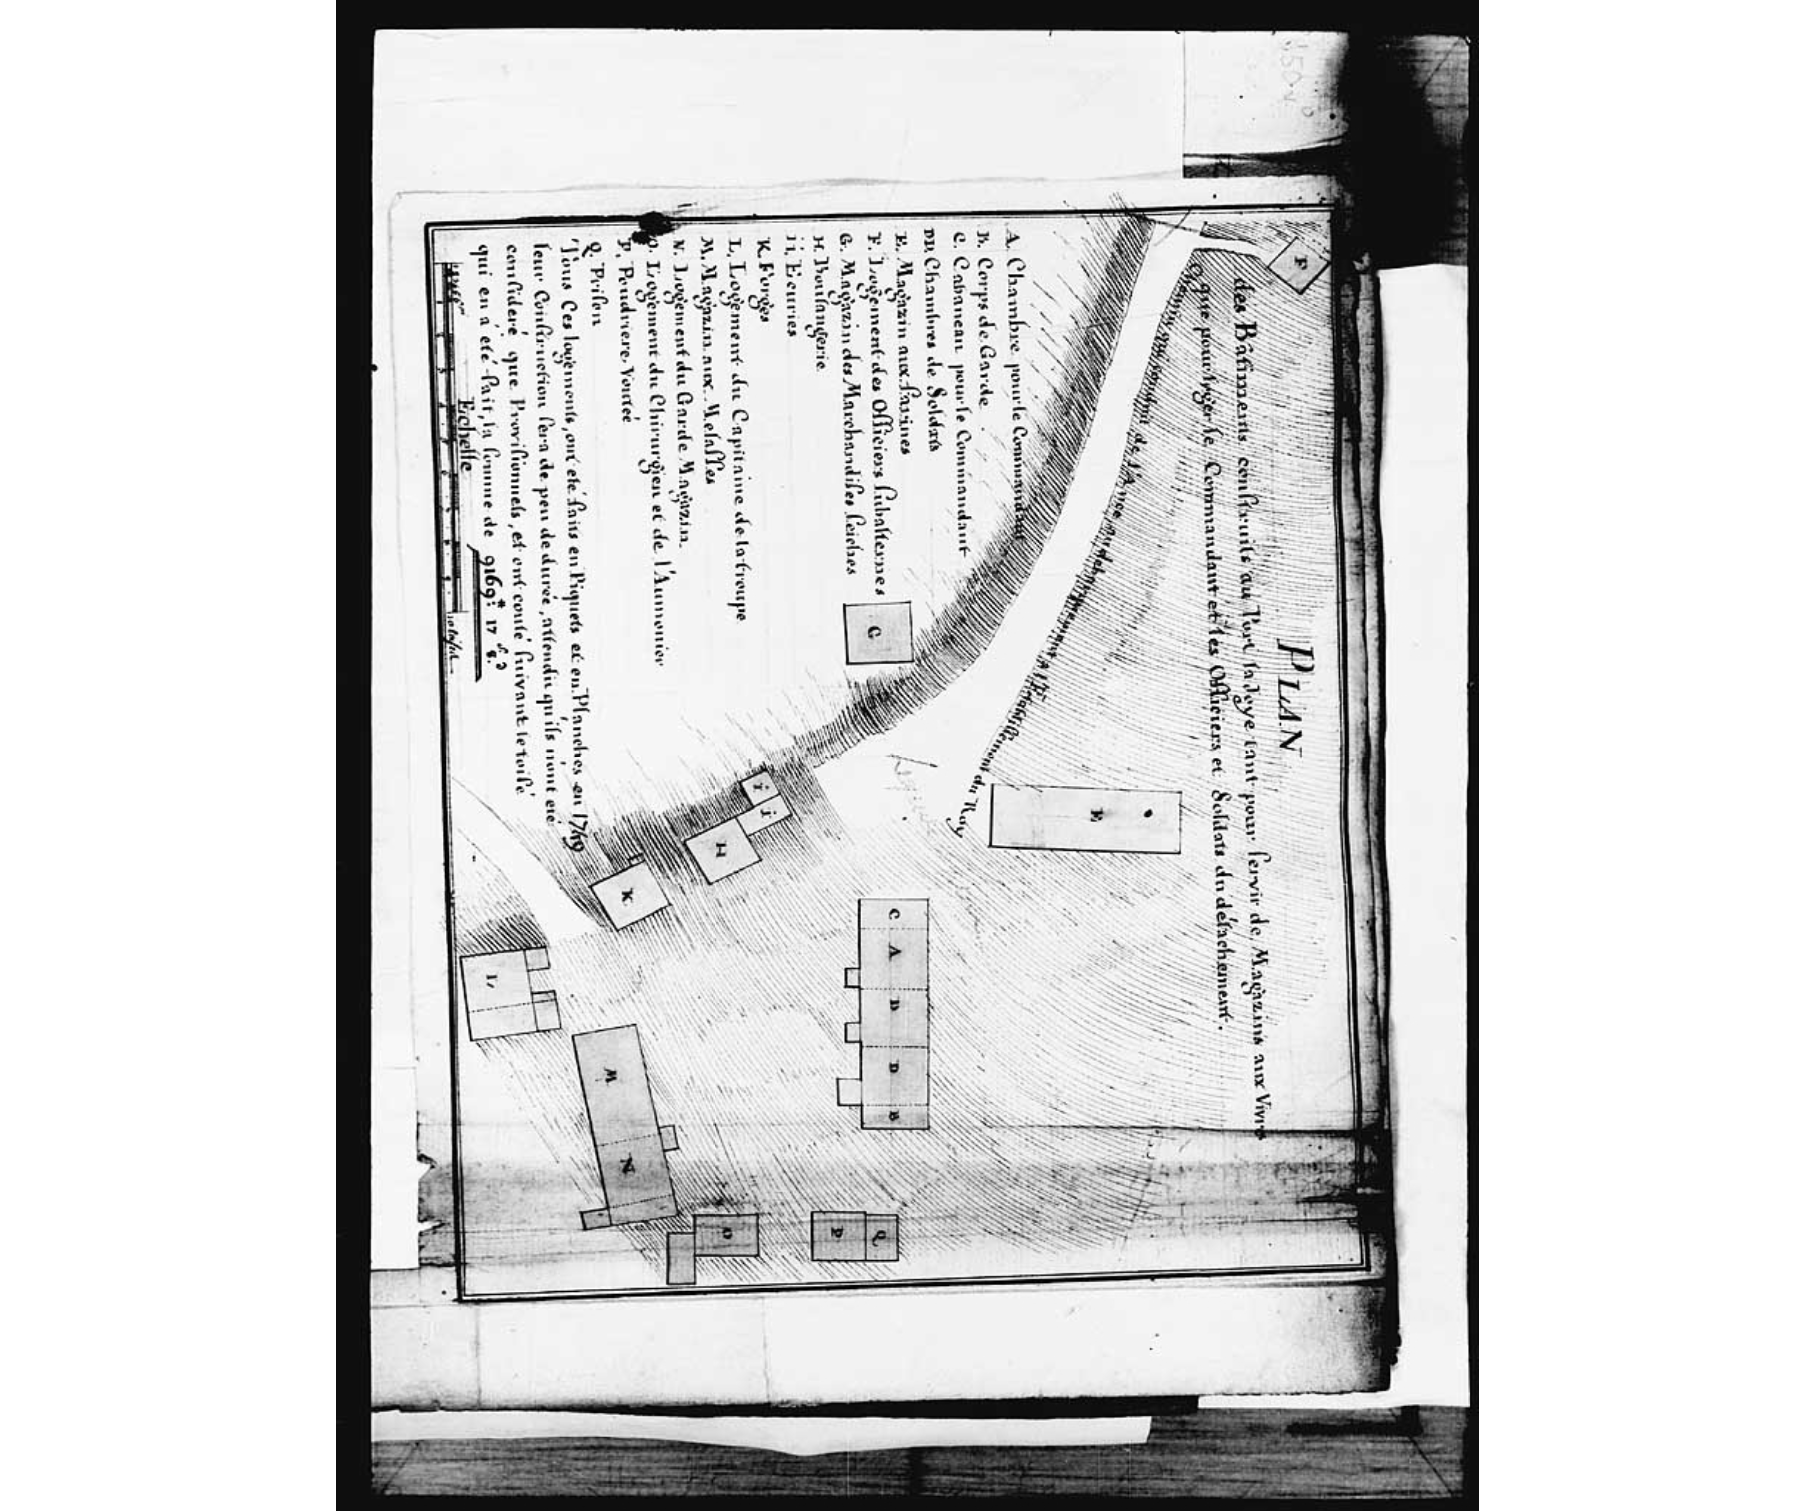 PLAN
des Bâtiments construits au Port la Joye tant pour servir de Magazins aux Vivres
que pour loger le Commandant et les Officiers et Soldats du détachement.
de l'Ance
Etablissement du Roy
A. Chambre pour le Commandant
B. Corps de Garde
C. Cabaneau pour le Commandant
DD. Chambres de Soldats
E. Magazin aux farines
F. Logement des Officiers Subalternes
G. Magazin des Marchandises seiches
H. Boulangerie
ii. Ecuries
K. Forges
L. Logement du Capitaine de la troupe
M. Magazin aux Melasses
N. Logement du Garde Magazin.
O. Logement du Chirurgien et de l'Aumonier
P. Poudriere Voutée
Q. Prison
Tous Ces logements, ont été faits en Piquets et en Planches en 1749
leur Construction sera de peu de durée, attendu qu'ils n'ont été
consideré que Provisionnels, et ont couté suivant le toisé
qui en a été fait, la somme de 9169:# 17 s. 8. d
Echelle
F
G
E
i
i
H
K
C
A
D
D
B
L
M
N
O
P
Q